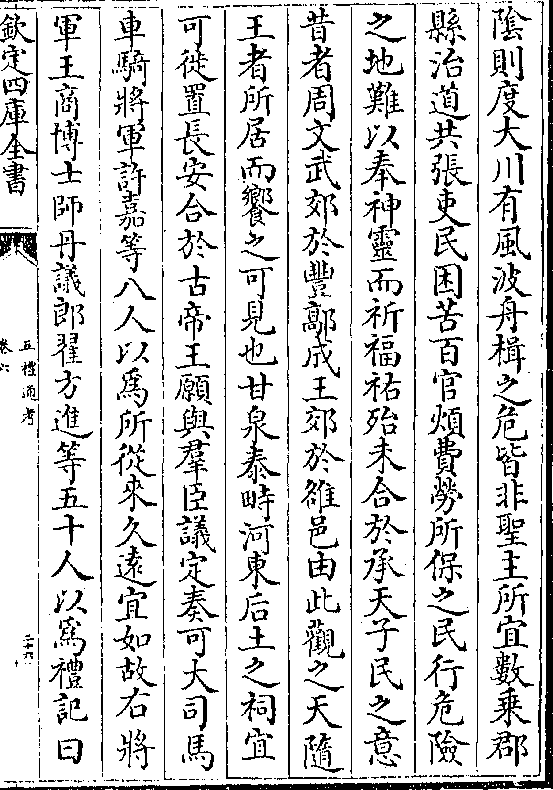 陰則度大川有風波舟楫之危皆非聖主所宜數乗郡
縣治道共張吏民困苦百官煩費勞所保之民行危險
之地難以奉神靈而祈福祐殆未合於承天子民之意
昔者周文武郊於豐鄗成王郊於雒邑由此觀之天隨
王者所居而饗之可見也甘泉泰畤河東后土之祠宜
可徙置長安合於古帝王願與羣臣議定奏可大司馬
車騎將軍許嘉等八人以為所從來久遠宜如故右將
軍王商博士師丹議郎翟方進等五十人以為禮記曰
欽定四庫全書
五禮通考
卷六
二十六